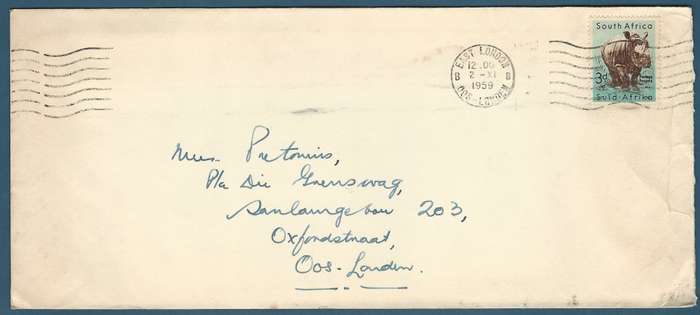 South Africa
3d
Suid Afrika
EAST LONDON
8 12.00 8
2-XI
1959
OOS-LONDEN
Mev. Pretorius,
P/a Die Grenswag,
Sanlamgebou 203,
Oxfordstraat,
Oos-Londen.